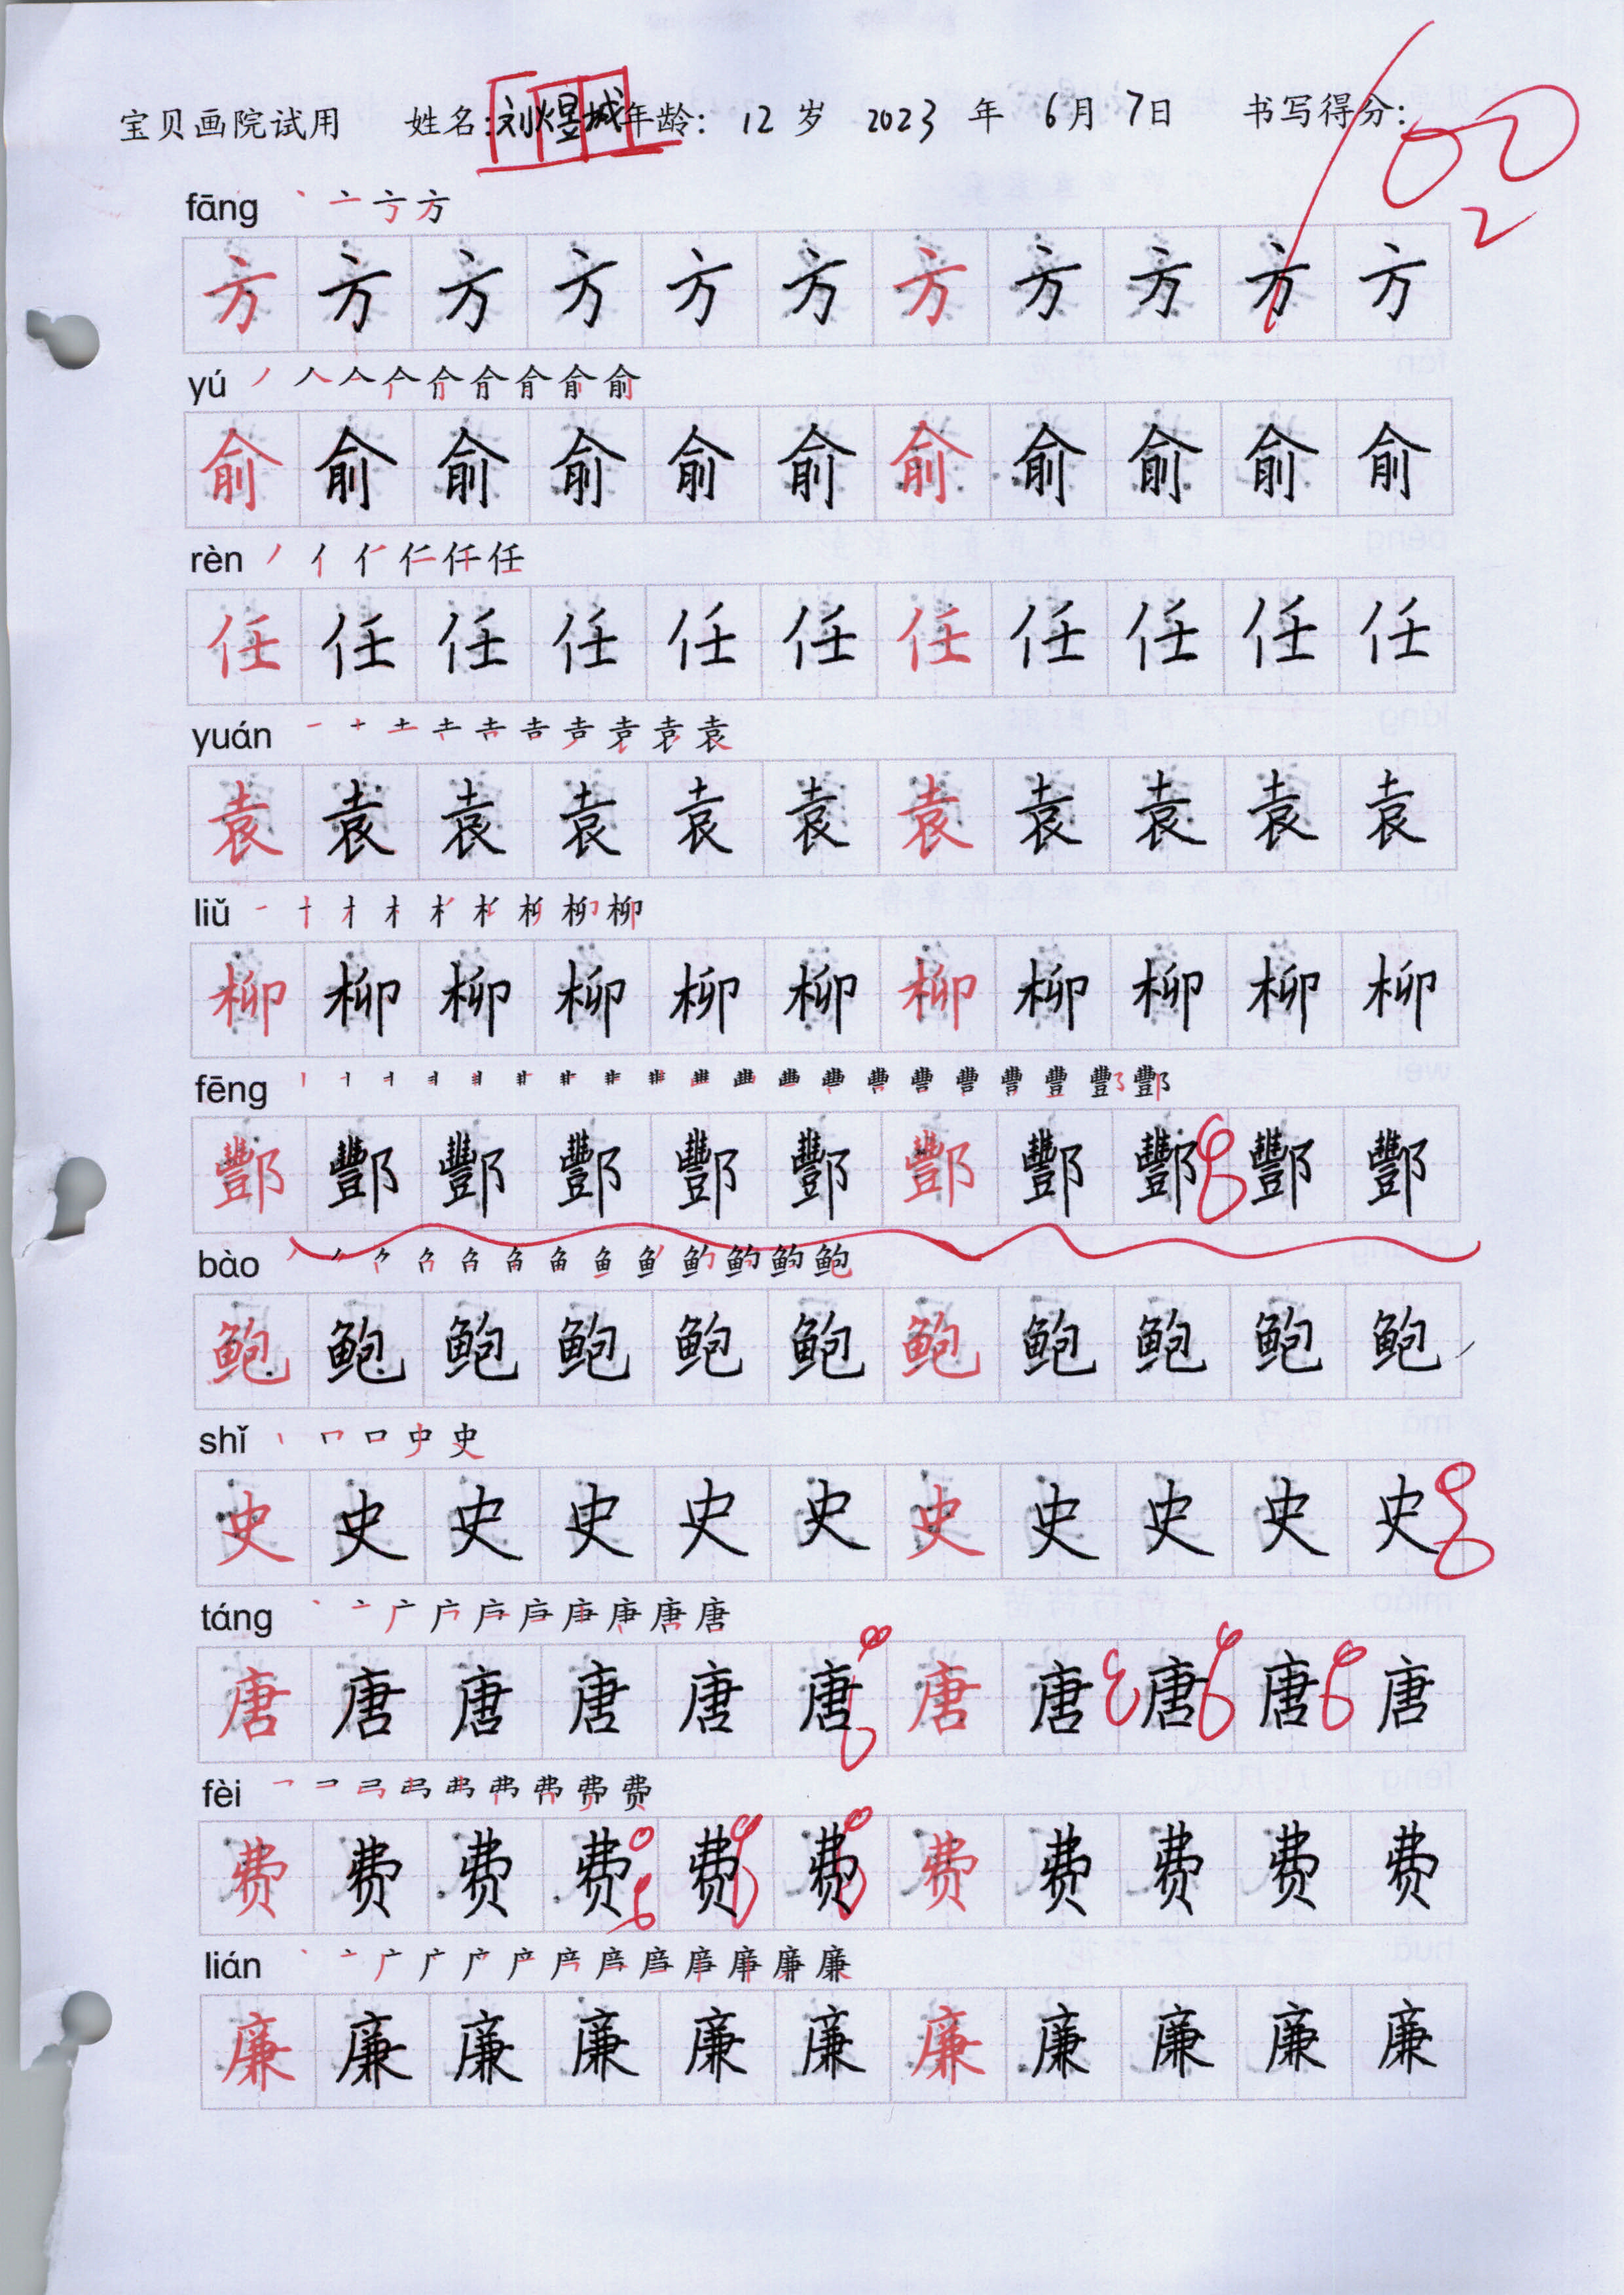 宝贝画院试用 姓名:刘煜城年龄: 12 岁 2023 年 6月 7日 书写得分: 100
2
fāng 丶 亠 亍 方
方 方 方 方 方 方 方 方 方 方 方
yú
俞 俞 俞 俞 俞 俞 俞 俞 俞 俞 俞
rèn 丿 亻 仁 仟 任
任 任 任 任 任 任 任 任 任 任 任
yuán 一 十 土 吉 袁
袁 袁 袁 袁 袁 袁 袁 袁 袁 袁 袁
liǔ 一 十 才 木 柳
柳 柳 柳 柳 柳 柳 柳 柳 柳 柳 柳
fēng 酆
酆 酆 酆 酆 酆 酆 酆 酆 酆 酆 酆
bào 鲍
鲍 鲍 鲍 鲍 鲍 鲍 鲍 鲍 鲍 鲍 鲍
shǐ 丨 口 史
史 史 史 史 史 史 史 史 史 史 史
táng 丶 亠 广 唐
唐 唐 唐 唐 唐 唐 唐 唐 唐 唐 唐
fèi 弗 费
费 费 费 费 费 费 费 费 费 费 费
lián 丶 亠 广 廉
廉 廉 廉 廉 廉 廉 廉 廉 廉 廉 廉